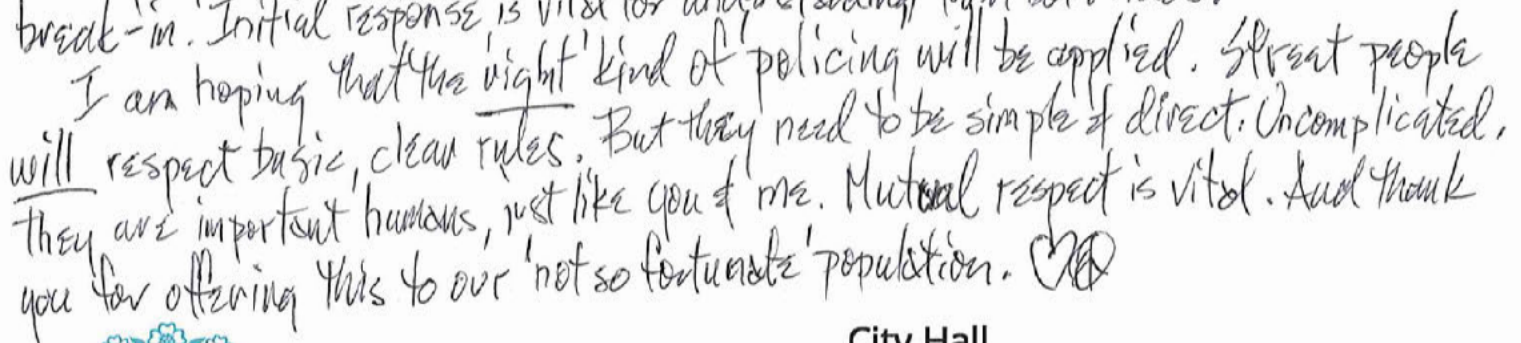 break-in. Initial response is vital for understanding
I am hoping that the 'right' kind of 'policing' will be applied. Street people
will respect basic, clear rules. But they need to be simple & direct. Uncomplicated.
They are important humans, just like you & me. Mutual respect is vital. And thank
you for offering this to our 'not so fortunate' population.
City Hall